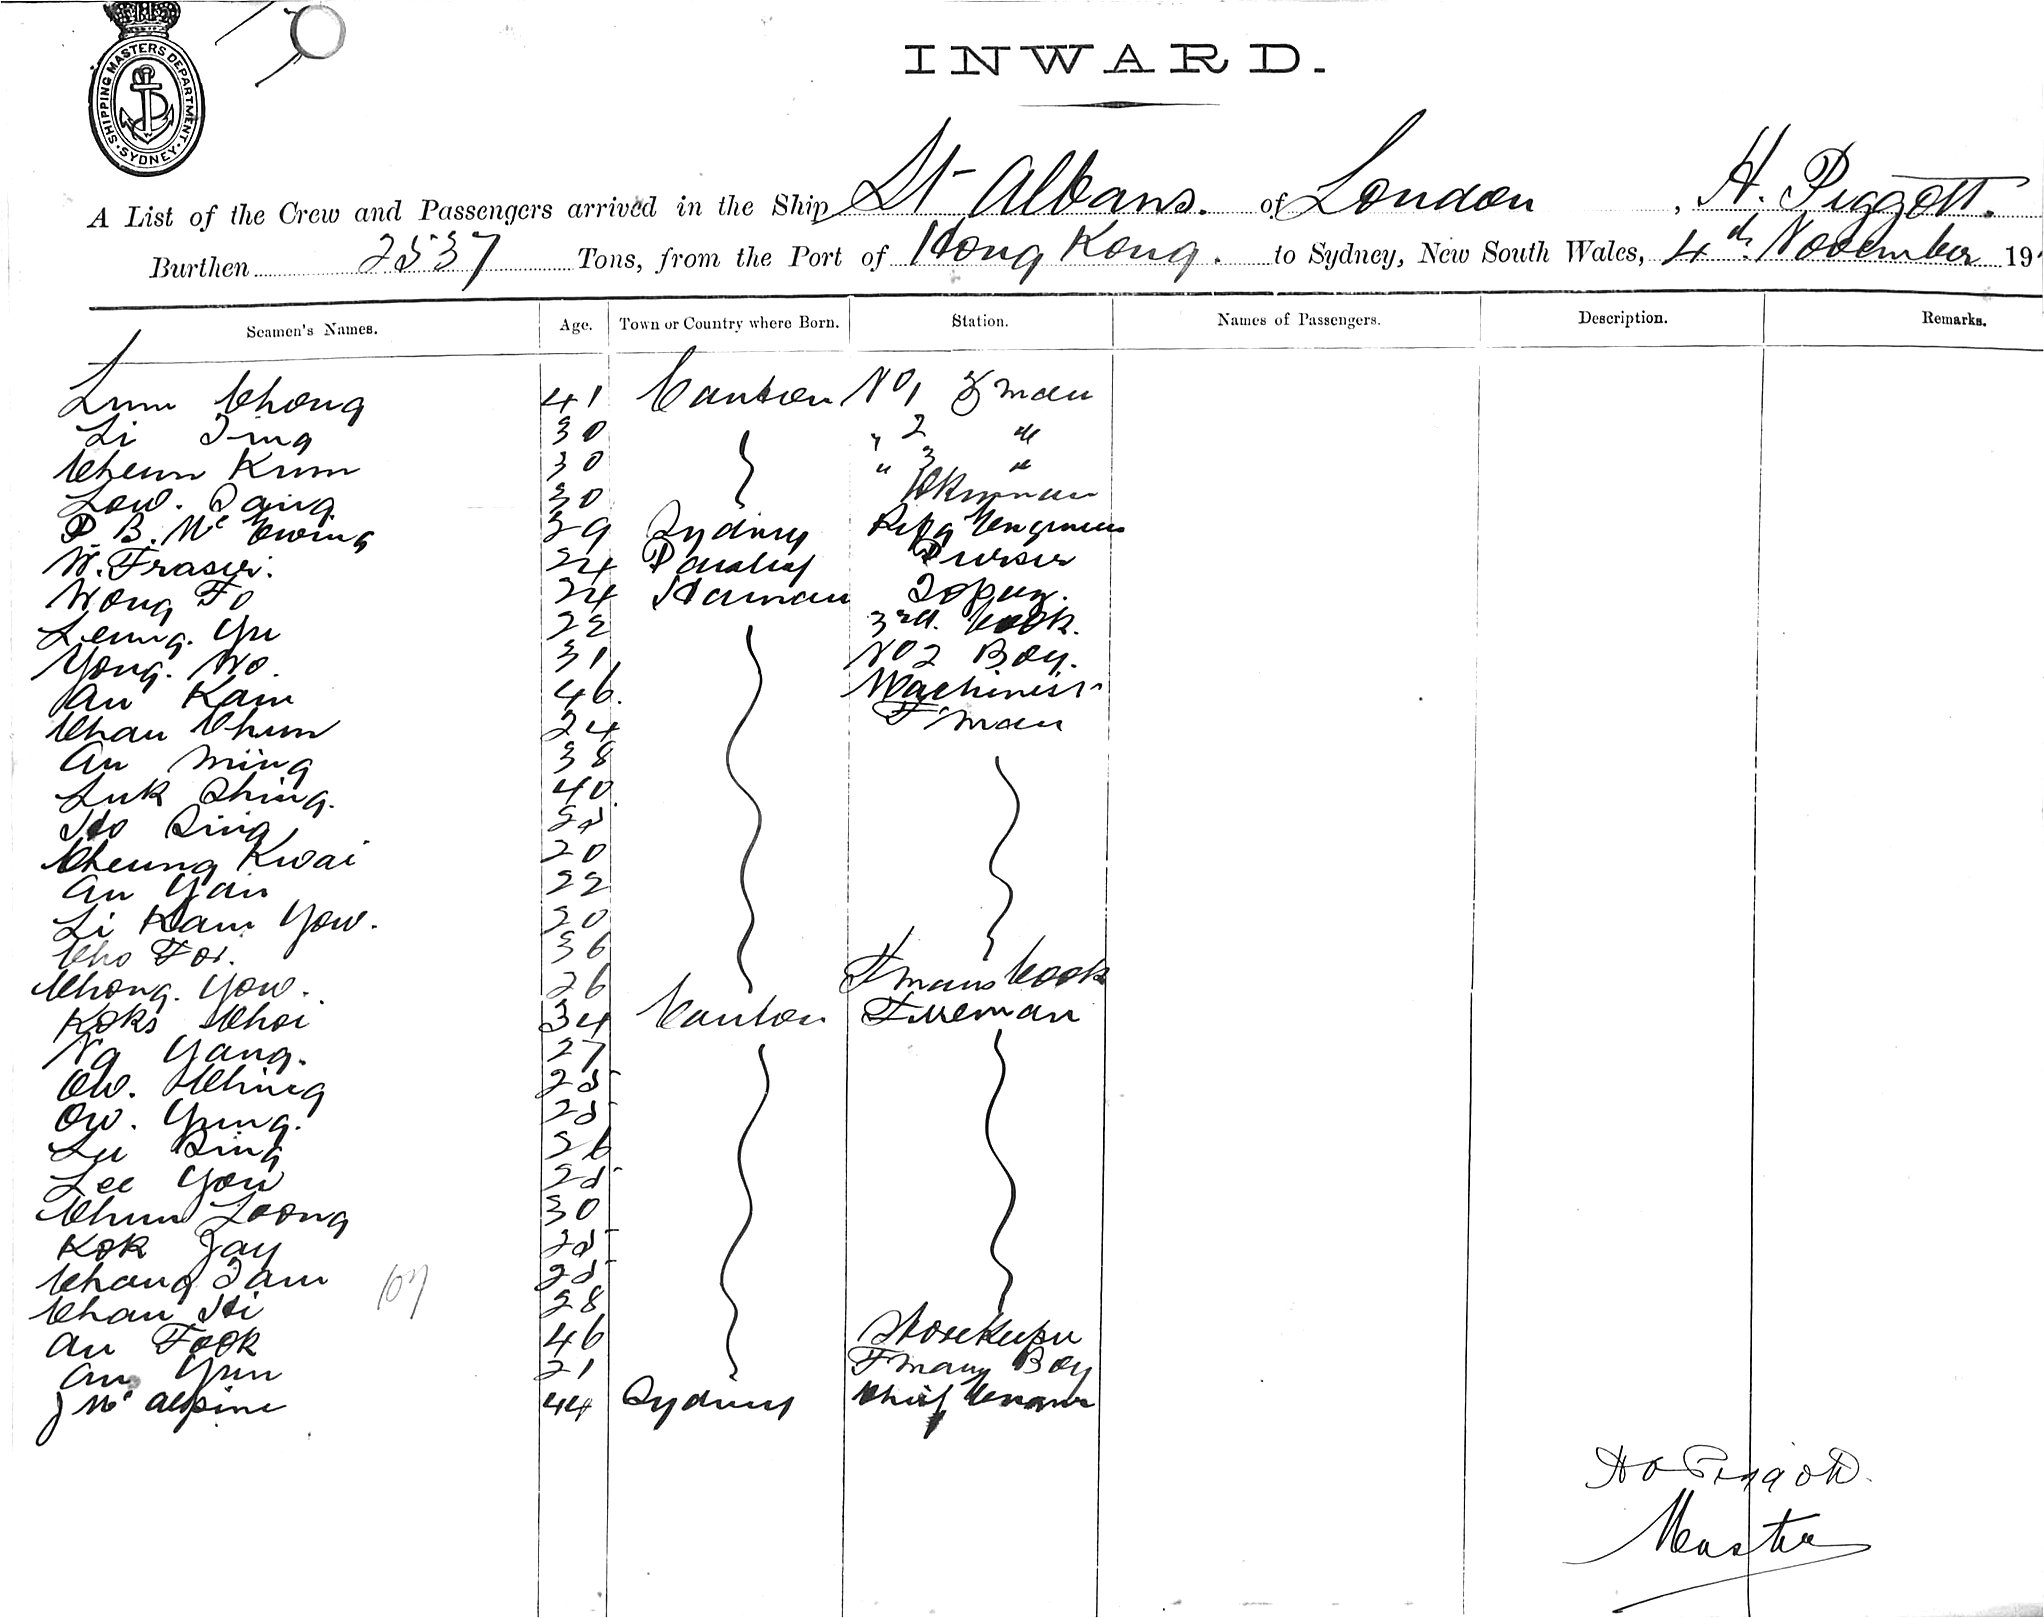 SHIPPING MASTERS DEPARTMENT · SYDNEY ·
INWARD.
A List of the Crew and Passengers arrived in the Ship St Albans. of London, H. Piggott.
Burthen 2537 Tons, from the Port of Hong Kong. to Sydney, New South Wales, 4th November 19
Seamen's Names. Age. Town or Country where Born. Station. Names of Passengers. Description. Remarks.
Lum Chong 41 Canton No 1 F man
Li Ting 30 " 2 "
Cheun Kum 30 " 3 "
Low. Sang 30
P. B. Mc Ewing 29 Sydney Refg Engineer
W. Fraser. 24 Paisley Purser
Wong Fo 24 Hainan Topaz.
Leung. Yu 22 3rd. Cook.
Yong. Wo. 31 No 2 Boy.
Au Kam 46. Machinist
Chau Chun 24 F'man
Au Ming 38
Luk Shing. 40
Ho Sing
Cheung Kwai 20
Au Yan 22
Li Kam Yow. 20
Cho Foi. 36
Chong. Yow. 26 Fmans Cook
Koks Choi 34 Canton Fireman
Ng Yang. 27
Ow. Ching 25
Ow. Yung. 25
Lu Sing 26
Lee You 25
Chun Loong 30
Kok Zay 25
Chang Tam 25
107
Chau Hi 28
Au Fook 46 Storekeeper
Au Yun 21 Fmans Boy
J Mc Alpine 44 Sydney Chief Engnr
H O Piggott.
Master